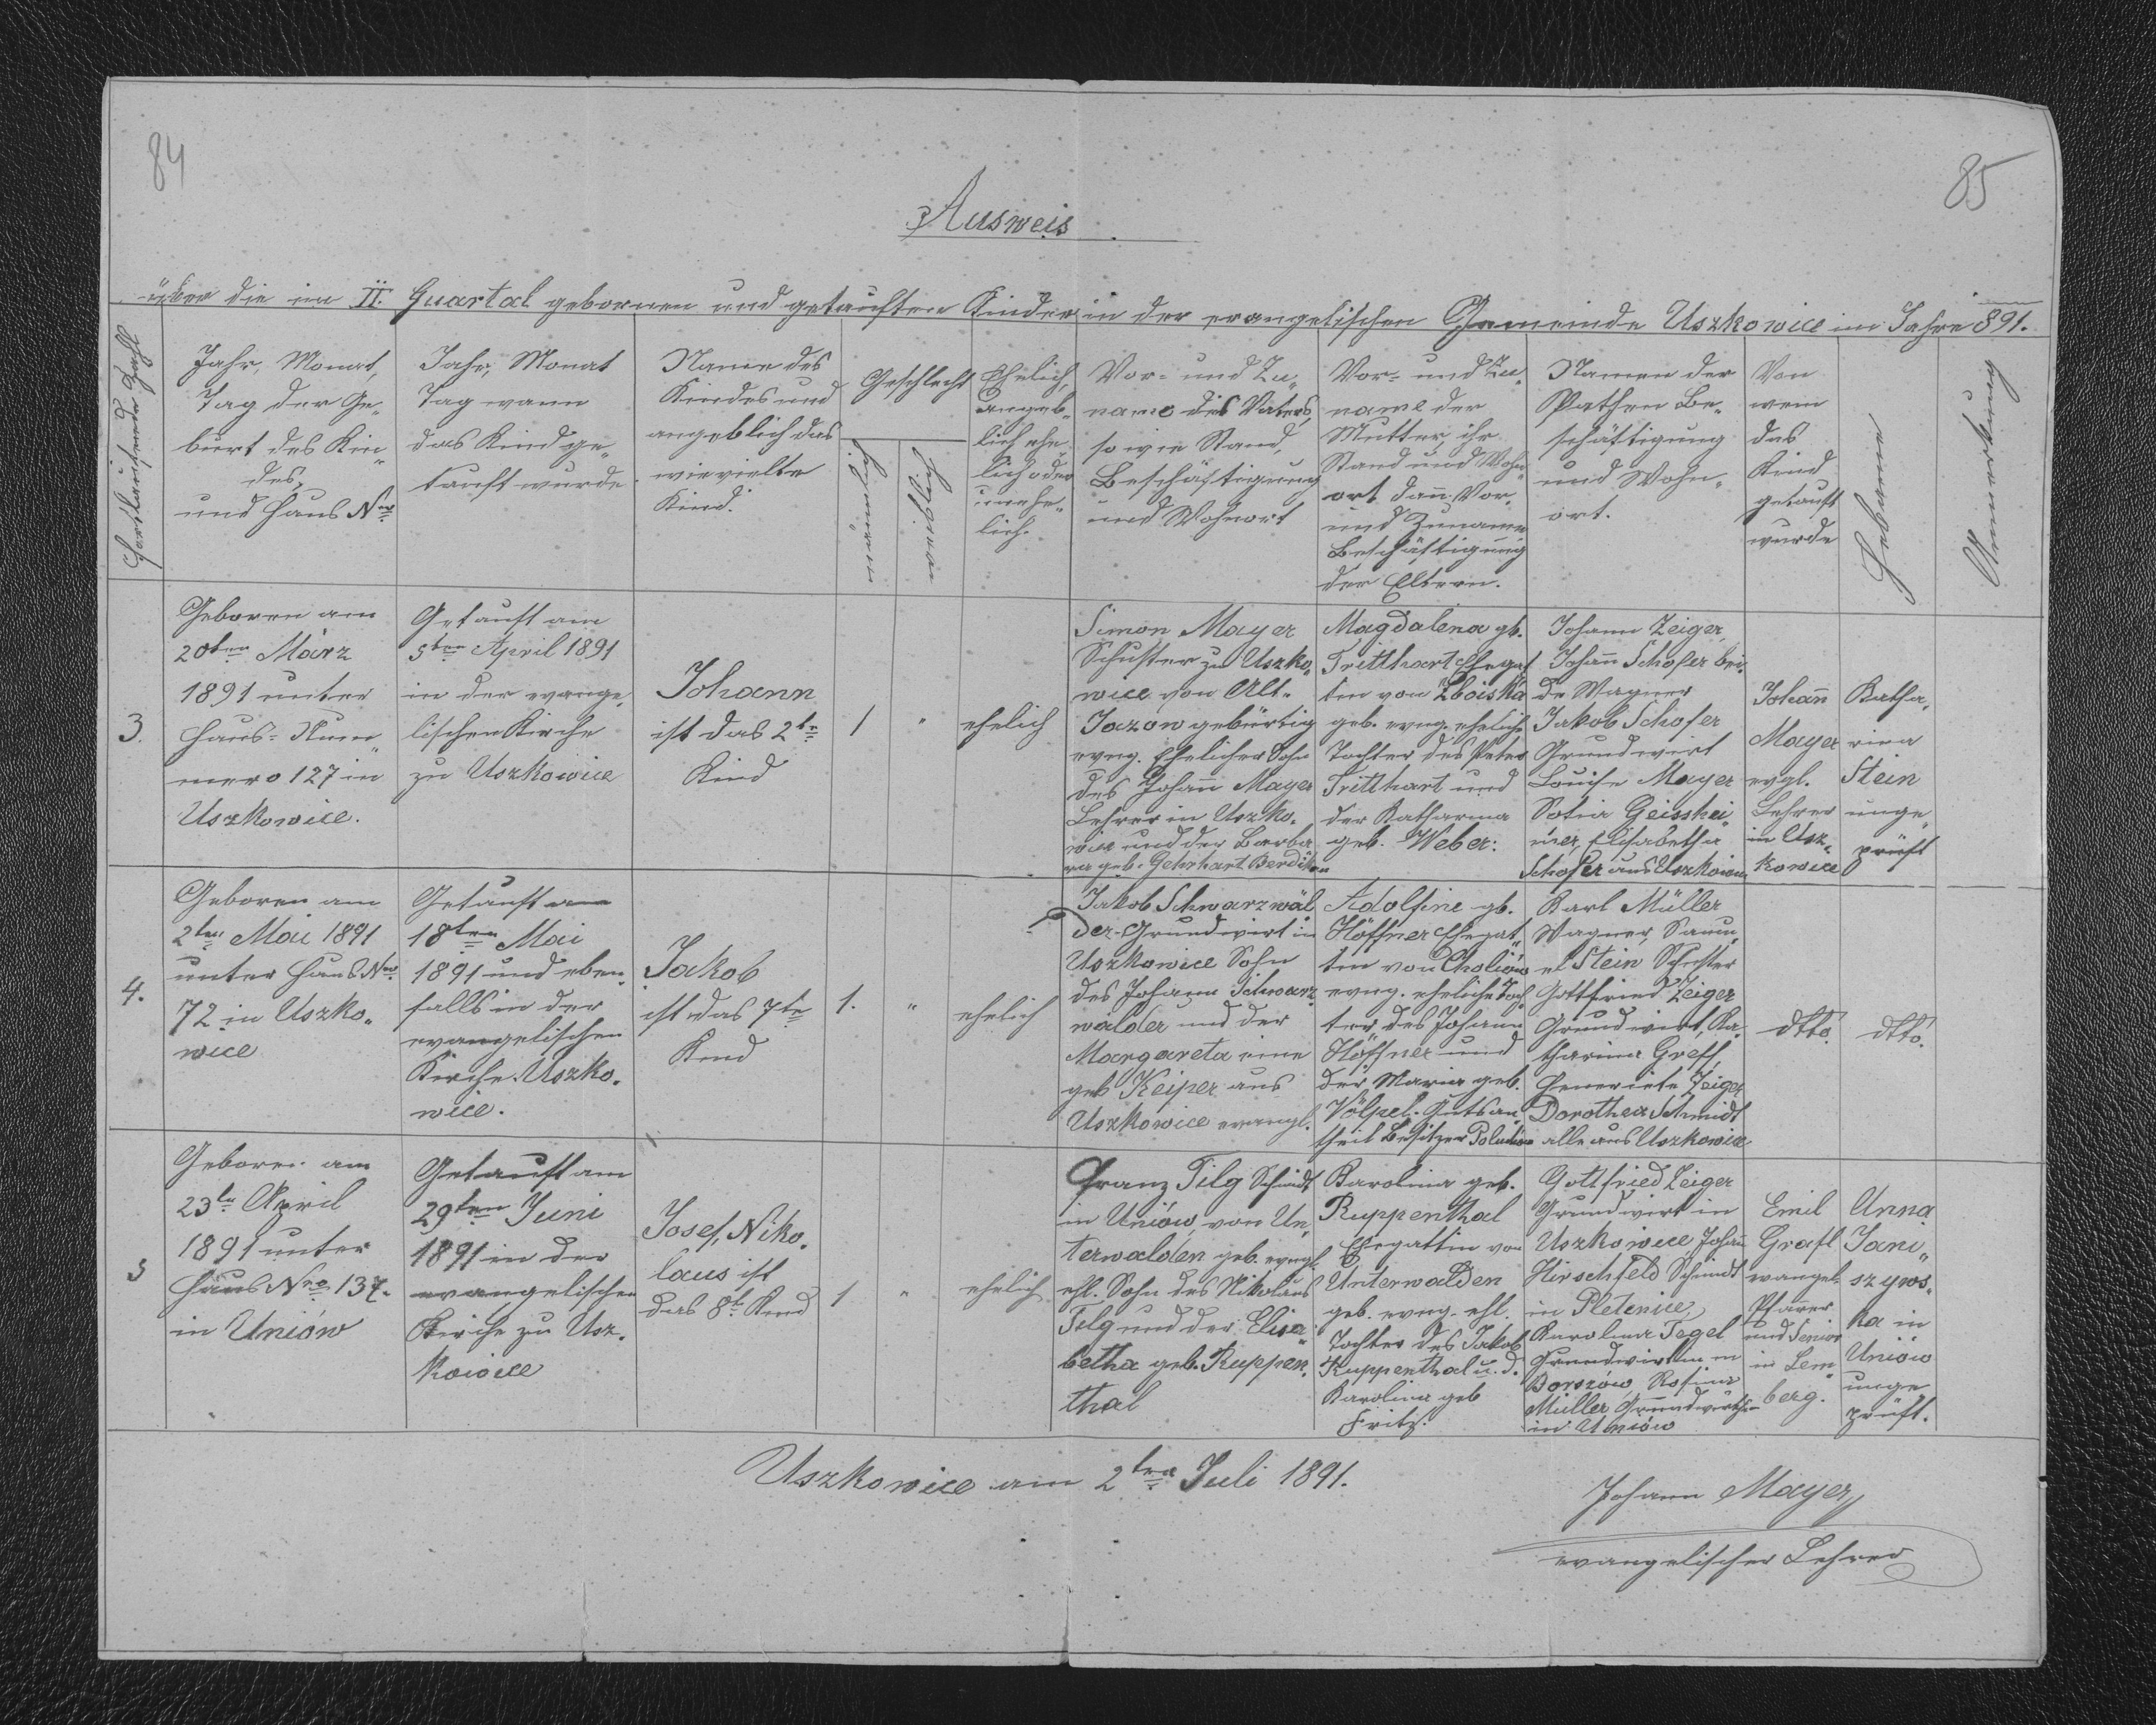 84
85
Ausweis
über die im II. Quartal gebornen und getauften Kinder in der evangelischen Gemeinde Uszkowice im Jahre 891.
Fortlaufende Zahl
Jahr, Monat,
Tag der Ge„
burt des Kin„
des,
und Haus Nro
Jahr, Monat
Tag wann
das Kind ge„
tauft wurde
Name des
Kindes und
angeblich das
wievielte
Kind.
Geschlecht
männlich
weiblich
Ehelich,
angeb„
lich ehe„
lich oder
unehe„
lich.
Vor- und Zu„
name des Vaters,
so wie Stand,
Beschäftigung
und Wohnort
Vor- und Zu„
name der
Mutter, ihr
Stand und Wohn„
ort dann Vor-
und Zuname
Beschäftigung
der Eltern.
Namen der
Pathen Be„
schäftigung
und Wohn„
ort.
Von
wem
das
Kind
getauft
wurde
Hebame
Anmerkung
3.
Geboren am
20ten März
1891 unter
Haus-Num„
mero 127 in
Uszkowice.
Getauft am
5ten April 1891
in der evange„
lischen Kirche
zu Uszkowice
Johann
ist das 2te
Kind
1
"
ehelich
Simon Mayer
Schuster zu Uszko„
wice von Alt-
Jazow gebürtig
evng. Ehelicher Sohn
des Johann Mayer
Lehrer in Uszko„
wice und der Barba
ra geb. Gehrhart
Magdalena gb.
Tritthart Ehegat
tin von Zboiska
geb. evng. eheliche
Tochter des Peter
Tritthart und
der Katharina
geb. Weber:
Johann Zeiger,
Johann Schofer bei„
de Wagner
Jakob Schofer
Grundwirt
Louise Mayer
Sofia Geisshei„
mer, Elisabetha
Schofer aus Uszkowice
Johann
Mayer
evgl.
Lehrer
in Usz„
kowice
Katha„
rina
Stein
unge„
prüft
4.
Geboren am
2ten Mai 1891
unter Haus Nro
72 in Uszko„
wice
Getauft am
18ten Mai
1891 und eben„
falls in der
evangelischen
Kirche Uszko„
wice.
Jakob
ist das 7te
Kind
1.
"
ehelich
Jakob Schwarzwäl
der Grundwirt in
Uszkowice Sohn
des Johann Schwarz
walder und der
Margareta eine
geb Keiper aus
Uszkowice evangl.
Adolfine gb.
Höffner Ehegat„
tin von Choliów
evng. eheliche Toch
ter, des Johann
Höffner und
der Maria geb.
Völpel. Gutsan„
theil Besitzer
Karl Müller
Wagner, Samu„
el Stein Schuster
Gottfried Zeiger
Grundwirt, Ka„
tharina Greff,
Heneriete Zeiger
Dorothea Schmidt
alle aus Uszkowice
dtto.
dtto.
5
Geboren am
23te April
1891 unter
Haus Nro 137.
in Uniów
Getauft am
29ten Juni
1891 in der
evangelischen
Kirche zu Usz„
kowice
Josef, Niko„
laus ist
das 8te Kind
1
"
ehelich
Franz Tilg Schmidt
in Uniów, von Un„
terwalden geb. evngl.
ehl. Sohn des Nikolaus
Tilg und der Elisa„
betha geb. Ruppen„
thal
Karolina geb.
Ruppenthal
Ehegattin von
Unterwalden
geb. evng. ehl.
Tochter des Jakob
Ruppenthal u. d.
Karolina geb
Fritz.
Gottfried Zeiger
Grundwirt in
Uszkowice, Johann
Hirschfeld Schmidt
in Pletenice,
Karolina Tegel
Grundwirtin in
Borszów, Rosina
Müller Grundwirthin
in Uniów
Emil
Grafl
evangel.
Pfarrer
und Senior
in Lem„
berg.
Anna
Jani„
szyws„
ka in
Uniów
unge
prüft.
Uszkowice am 2ten Juli 1891.
Johann Mayer
evangelischer Lehrer